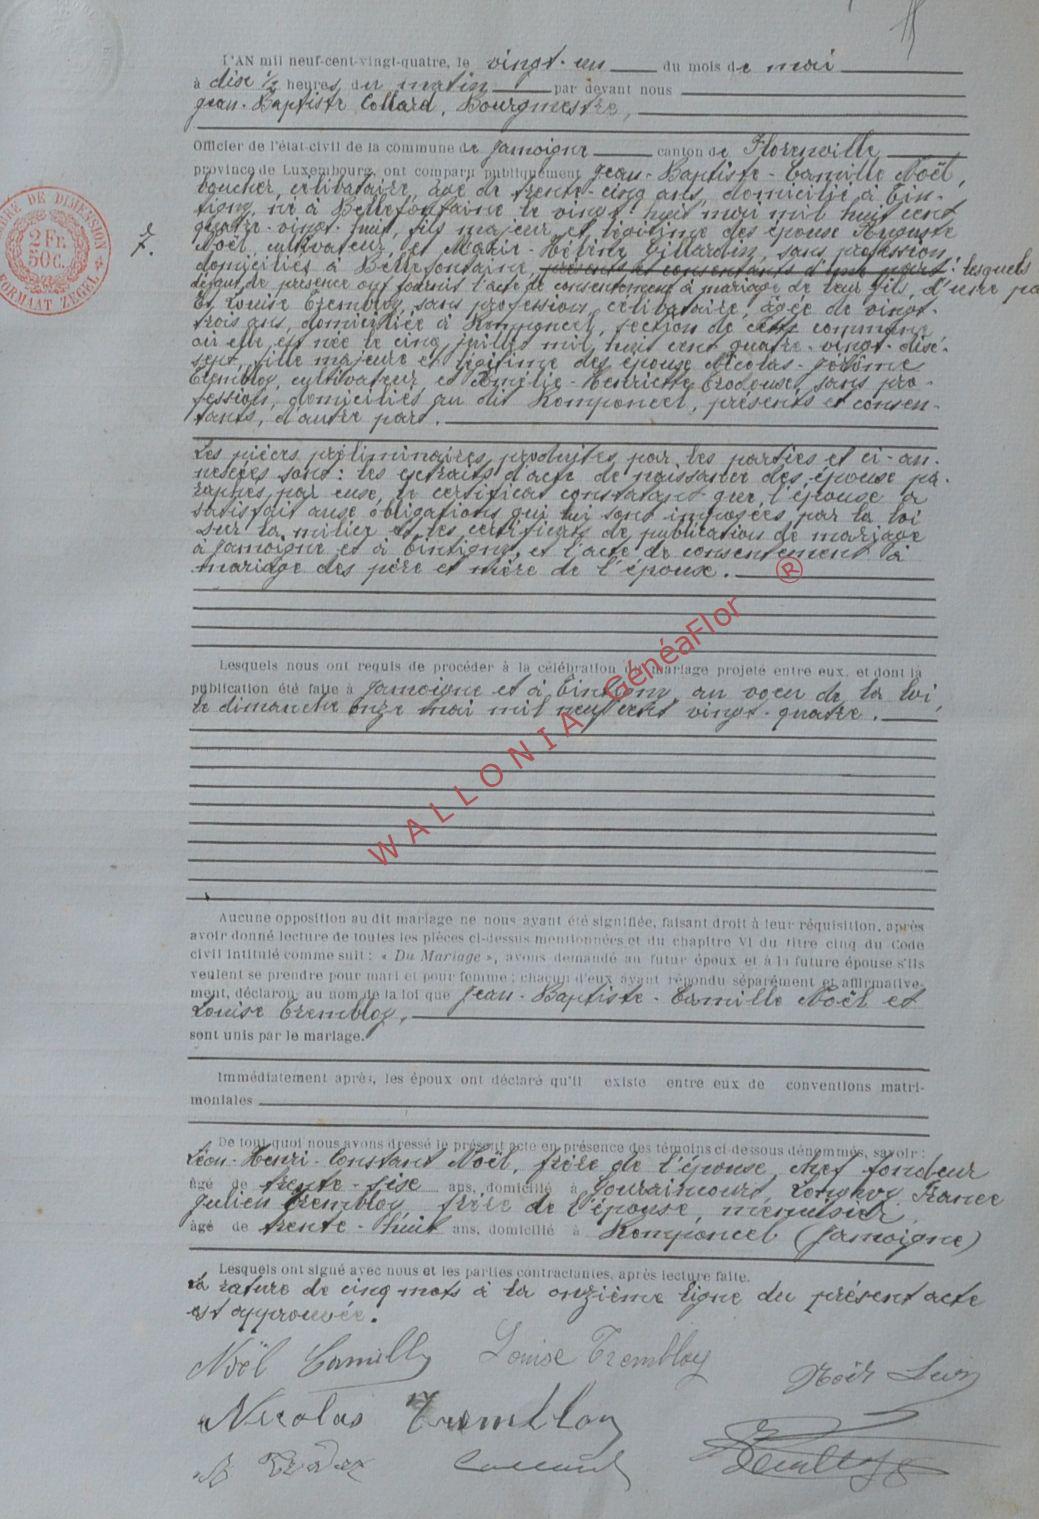 L'AN mil neuf-cent-vingt-quatre, le vingt-un du mois de mai
à dix ½ heures du matin par devant nous
Jean-Baptiste Collard, Bourgmestre,
Officier de l'état-civil de la commune de Jamoigne canton de Florenville
province de Luxembourg, ont comparu publiquement Jean-Baptiste-Camille Noël,
boucher, célibataire, âgé de trente-cinq ans, domicilié à Tin-
tigny, né à Bellefontaine le vingt-huit mai mil huit cent
quatre-vingt-huit, fils majeur et légitime des époux Auguste
7.
Noël, cultivateur, et Marie-Hélène Gillardin, sans profession,
domiciliés à Bellefontaine, présents et consentants d'une part: lesquels
défaut de présence ont fourni l'acte de consentement à mariage de leur fils, d'une pa
Et Louise Trembloy, sans profession, célibataire, âgée de vingt-
trois ans, domiciliée à Romponcel, section de cette commune
où elle est née le cinq juillet mil huit cent quatre-vingt-dix-
sept, fille majeure et légitime des époux Nicolas-Jérôme
Trembloy, cultivateur, et Amélie-Henriette Trodoux, sans pro-
fession, domiciliés au dit Romponcel, présents et consen-
tants, d'autre part.
Les pièces préliminaires produites par les parties et ci-an-
nexées sont: les extraits d'acte de naissance des époux pa-
raphés par eux, le certificat constatant que l'époux a
satisfait aux obligations qui lui sont imposées par la loi
sur la milice et les certificats de publication de mariage
à Jamoigne et à Tintigny, et l'acte de consentement à
mariage des père et mère de l'époux.
Lesquels nous ont requis de procéder à la célébration du mariage projeté entre eux, et dont la
publication été faite à Jamoigne et à Tintigny, au voeu de la loi,
le dimanche onze mai mil neuf cent vingt-quatre.
WALLONIA GénéaFlor ®
Aucune opposition au dit mariage ne nous ayant été signifiée, faisant droit à leur réquisition, après
avoir donné lecture de toutes les pièces ci-dessus mentionnées et du chapitre VI du titre cinq du Code
civil intitulé comme suit: « Du Mariage », avons demandé au futur époux et à la future épouse s'ils
veulent se prendre pour mari et pour femme; chacun d'eux ayant répondu séparément et affirmative-
ment, déclarons au nom de la loi que Jean-Baptiste-Camille Noël et
Louise Trembloy,
sont unis par le mariage.
Immédiatement après, les époux ont déclaré qu'il existe entre eux de conventions matri-
moniales
De tout quoi nous avons dressé le présent acte en présence des témoins ci-dessous dénommés, savoir:
Léon-Henri-Constant Noël, frère de l'époux, chef fondeur
âgé de trente-six ans, domicilié à Gouraincourt, Longwy, France
Julien Trembloy, frère de l'épouse, menuisier,
âgé de trente-huit ans, domicilié à Romponcel (Jamoigne)
Lesquels ont signé avec nous et les parties contractantes, après lecture faite.
La rature de cinq mots à la onzième ligne du présent acte
est approuvée.
Noël Camille Louise Trembloy Noël Léon
Nicolas Trembloy
2 Fr. 50 c.